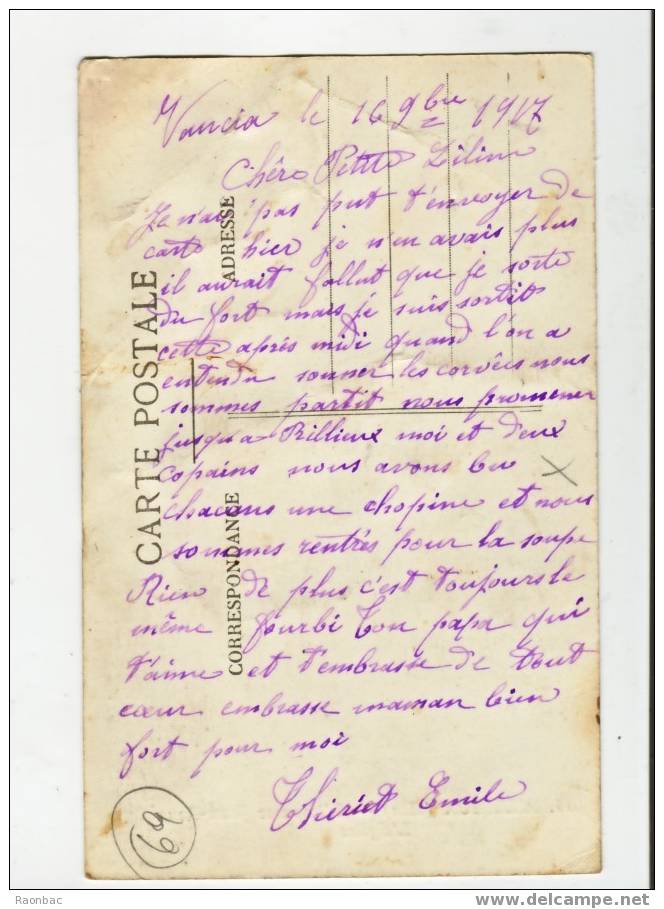 Vancia le 16 9bre 1917
Chère Petite Liline
Je n'ai pas put t'envoyer de
carte hier je n'en avais plus
il aurait fallut que je sorte
du fort mais je suis sortit
cette après midi quand l'on a
entendu sonner les corvées nous
sommes partit nous promener
jusqu'a Rillieux moi et deux
copains nous avons bu
chacuns une chopine et nous
sommes rentrés pour la soupe
Rien de plus c'est toujours le
même fourbi Ton papa qui
t'aime et t'embrasse de tout
cœur embrasse maman bien
fort pour moi
Thiériet Emile
CARTE POSTALE
ADRESSE
CORRESPONDANCE
69
Raonbac
www.delcampe.net